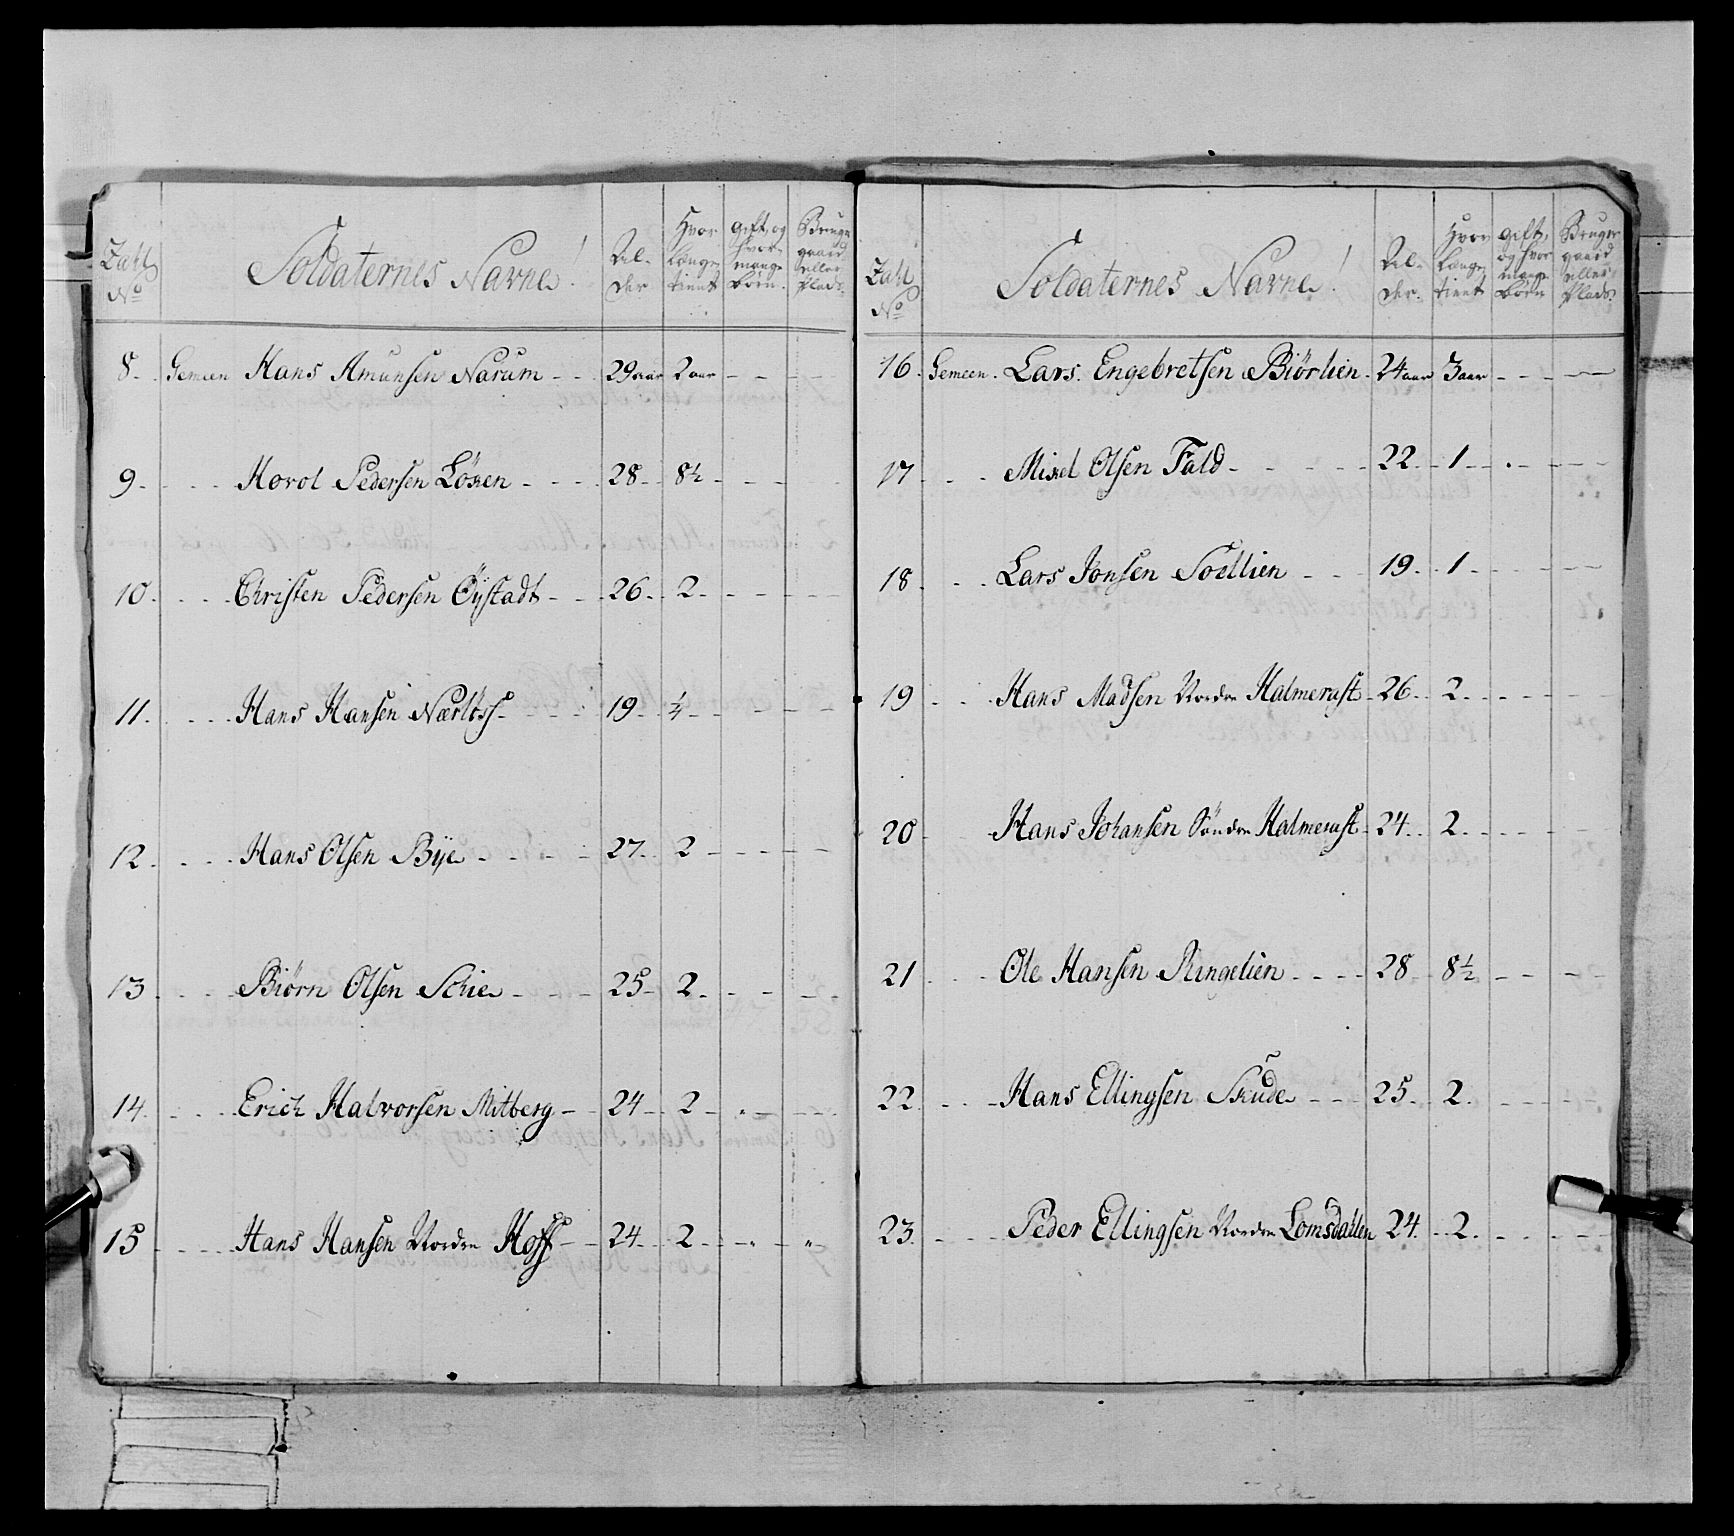 Zahl No Soldaternes Navne! Al- der Hvor længe tient gift, og hvor mange børn. Bruger gaard eller Plads.
8. Gemeen Hans Amunsen Narum 29 aar 2 aar
9. Horol Pedersen Lösen 28 8½
10. Christen Pedersen Öystadt 26 2
11. Hans Hansen Nærløss 19 ¼
12. Hans Olsen Bye 27 2
13. Biørn Olsen Schie 25 2
14. Erich Halvorsen Mitberg 24 2
15 Hans Hansen Nordre Hoff 24 2
Zahl No Soldaternes Navne! Al- der. Hvor længe tient gift, og hvor mange børn Bruger gaard eller Plads.
16. Gemeen. Lars Engebretsen Biørlien 24 aar 3 aar
17 Mikel Olsen Fald 22 1
18. Lars Jonsen Soellien 19 1
19 Hans Madsen Nordre Halmerast 26 2
20 Hans Johansen Söndre Halmerast 24 2
21 Ole Hansen Ringelien 28 8½
22 Hans Ellingsen Skude 25 2
23. Peder Ellingsen Nordre Lomsdahlen 24 2